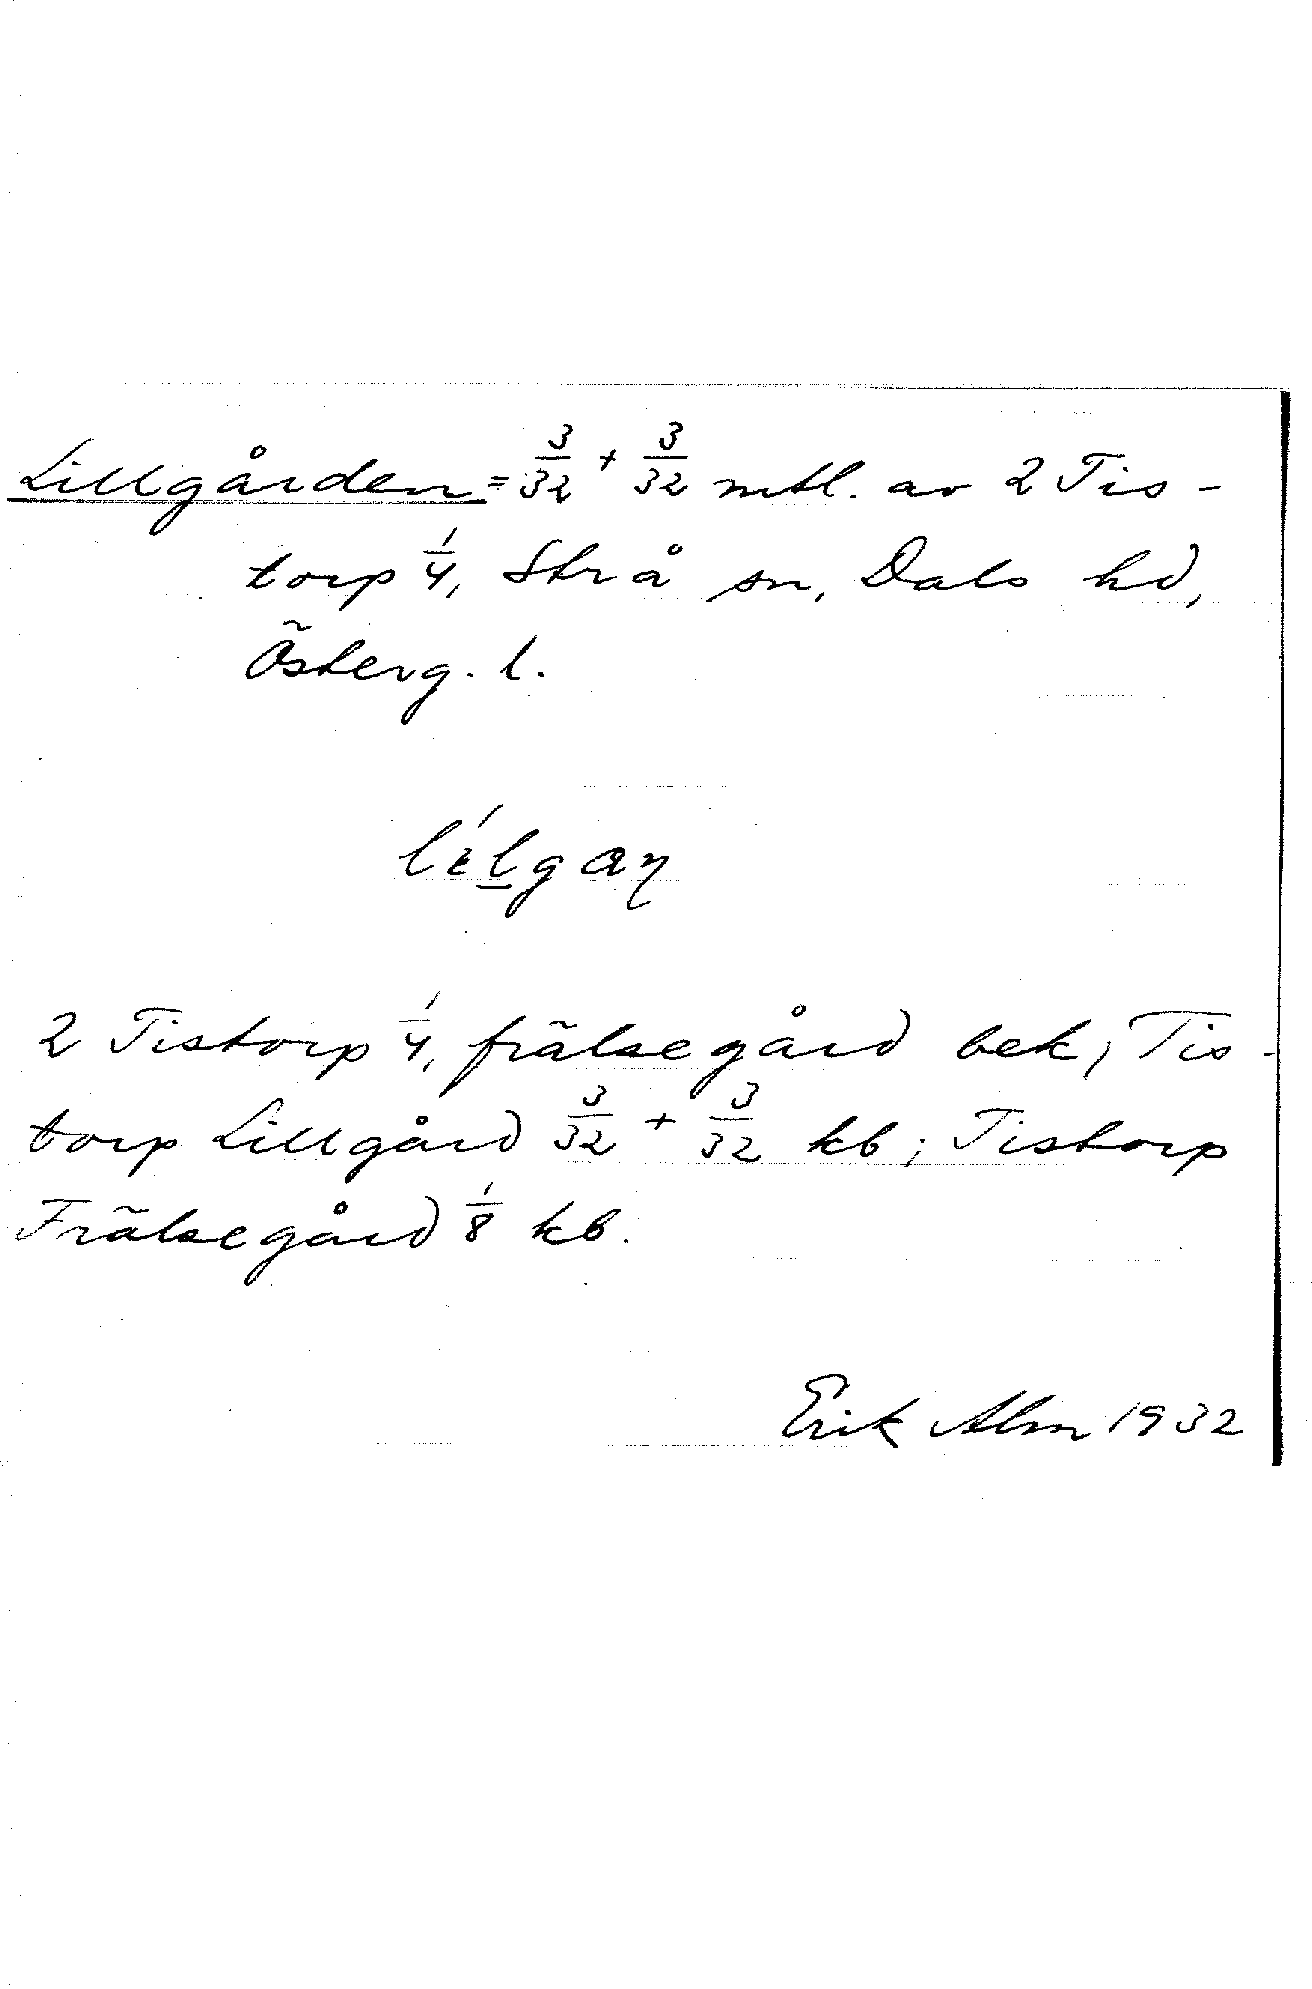 Lillgården = 3/32 + 3/32 mtl. av 2 Tis-
torp 1/4, Strå sn, Dals hd,
Österg. l.
lílgaɳ
2 Tistorp 1/4, frälsegård bek; Tis-
torp Lillgård 3/32 + 3/32 kb; Tistorp
Frälsegård 1/8 kb.
Erik Alm 1932